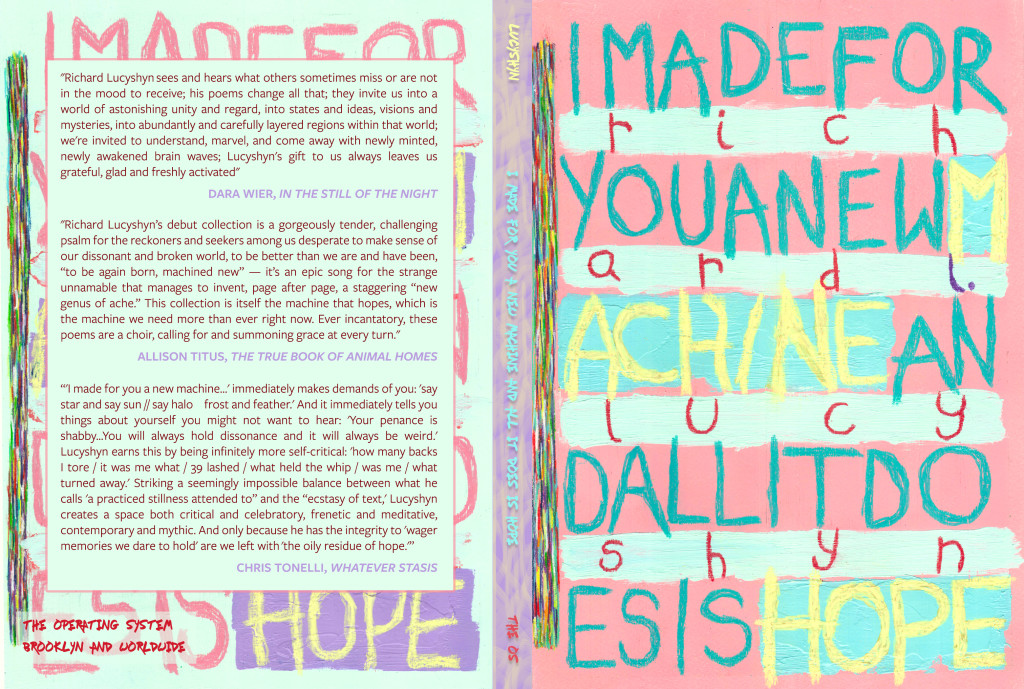 I MADE FOR
"Richard Lucyshyn sees and hears what others sometimes miss or are not
in the mood to receive; his poems change all that; they invite us into a
world of astonishing unity and regard, into states and ideas, visions and
mysteries, into abundantly and carefully layered regions within that world;
we're invited to understand, marvel, and come away with newly minted,
newly awakened brain waves; Lucyshyn's gift to us always leaves us
grateful, glad and freshly activated"
DARA WIER, IN THE STILL OF THE NIGHT
"Richard Lucyshyn's debut collection is a gorgeously tender, challenging
psalm for the reckoners and seekers among us desperate to make sense of
our dissonant and broken world, to be better than we are and have been,
“to be again born, machined new” — it's an epic song for the strange
unnamable that manages to invent, page after page, a staggering “new
genus of ache.” This collection is itself the machine that hopes, which is
the machine we need more than ever right now. Ever incantatory, these
poems are a choir, calling for and summoning grace at every turn."
ALLISON TITUS, THE TRUE BOOK OF ANIMAL HOMES
"'I made for you a new machine...' immediately makes demands of you: 'say
star and say sun // say halo    frost and feather.' And it immediately tells you
things about yourself you might not want to hear: 'Your penance is
shabby...You will always hold dissonance and it will always be weird.'
Lucyshyn earns this by being infinitely more self-critical: 'how many backs
I tore / it was me what / 39 lashed / what held the whip / was me / what
turned away.' Striking a seemingly impossible balance between what he
calls 'a practiced stillness attended to” and the “ecstasy of text,' Lucyshyn
creates a space both critical and celebratory, frenetic and meditative,
contemporary and mythic. And only because he has the integrity to 'wager
memories we dare to hold' are we left with 'the oily residue of hope.'"
CHRIS TONELLI, WHATEVER STASIS
ES IS HOPE
THE OPERATING SYSTEM
BROOKLYN AND WORLDWIDE
LUCYSHYN
I MADE FOR YOU A NEW MACHINE AND ALL IT DOES IS HOPE
THE OS
I MADE FOR
rich
YOU A NEW M
ard l.
ACHINE AN
lucy
D ALL IT DO
shyn
ES IS HOPE